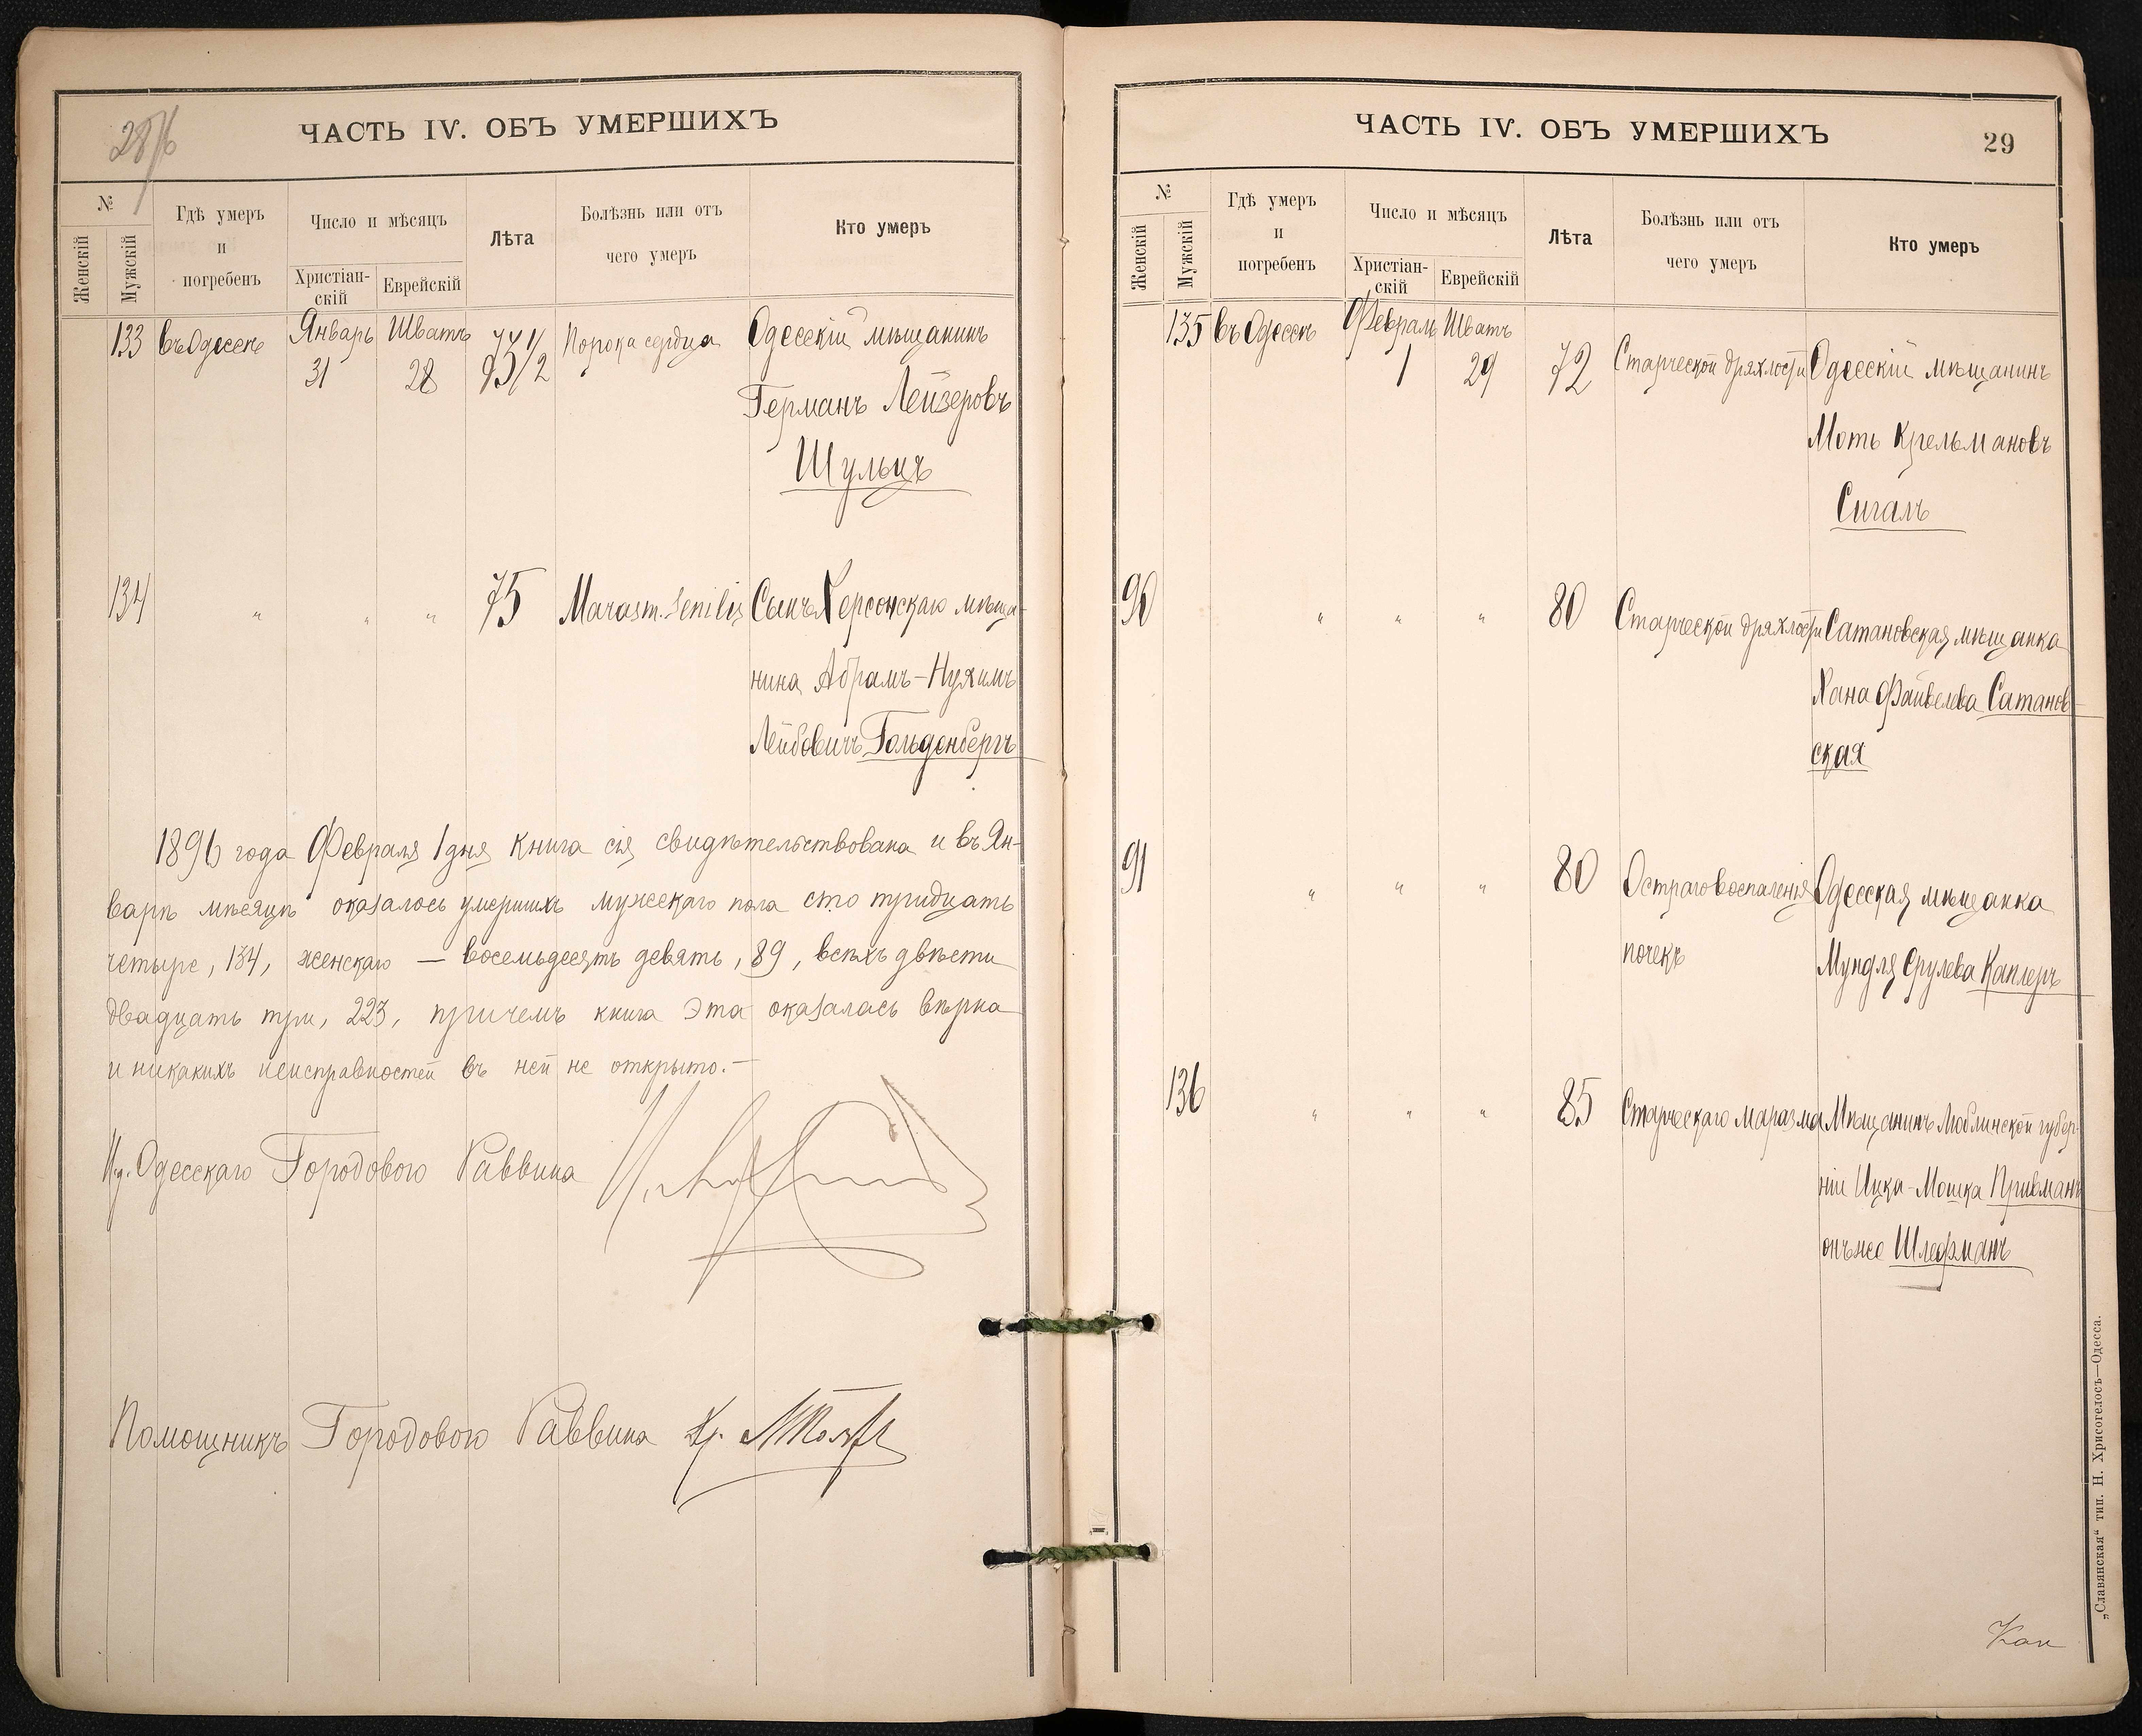 28/б
ЧАСТЬ IV. ОБЪ УМЕРШИХЪ
№
Женскій
Мужскій
Гдѣ умеръ
и
погребенъ
Число и мѣсяцъ
Христіан-
скій
Еврейскій
Лѣта
Болѣзнь или отъ
чего умеръ
Кто умеръ
133 въ Одессѣ Январь Шватъ Порока сердца Одесскій мѣщанинъ
31 28
Германъ Лейзеровъ
Шульцъ
134 " " " 75 Marasm. senilis Сынъ Херсонскаго мѣща-
нина Абрамъ-Нухимъ
Лейбовичъ Гольденбергъ
1896 года Февраля 1 дня книга сія свидѣтельствована и въ Ян-
варѣ мѣсяцѣ оказалось умершихъ мужескаго пола сто тридцать
четыре, 134, женскаго — восемьдесятъ девять, 89, всѣхъ двѣсти
двадцать три, 223, причемъ книга эта оказалась вѣрна
и никакихъ неисправностей въ ней не открыто.—
И.д. Одесскаго Городового Раввина
Помощникъ Городового Раввина
ЧАСТЬ IV. ОБЪ УМЕРШИХЪ
29
№
Женскій
Мужскій
Гдѣ умеръ
и
погребенъ
Число и мѣсяцъ
Христіан-
скій
Еврейскій
Лѣта
Болѣзнь или отъ
чего умеръ
Кто умеръ
135 въ Одессѣ Февраль Шватъ
1 29 72 Старческой дряхлости Одесскій мѣщанинъ
Моть Крельмановъ
Сигалъ
90 " " " 80 Старческой дряхлости Сатановская мѣщанка
Хана Файвелева Сатанов-
ская
91 " " " 80 Остраго воспаленія Одесская мѣщанка
почекъ Мундля Срулева Каплеръ
136 " " " 85 Старческаго маразма Мѣщанинъ Люблинской губер-
ніи Ицка-Мошка Привманъ
онъ же Шлефманъ
„Славянская“ тип. Н. Хрисогелосъ—Одесса.